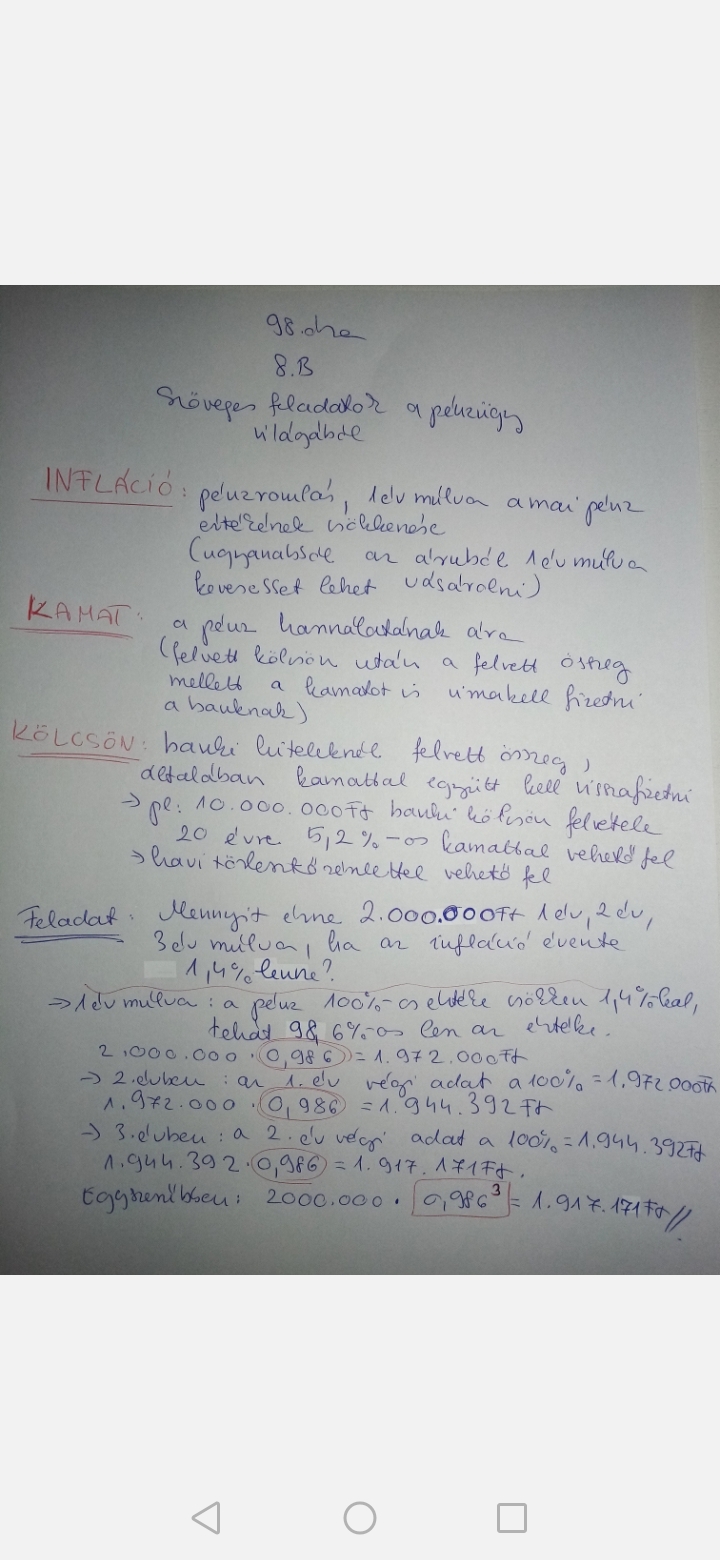 98.óra
8.B
Szöveges feladatok a pénzügy
világából
INFLÁCIÓ: pénzromlás, 1 év múlva a mai pénz
értékének csökkenése
(ugyanabból az áruból 1 év múlva
kevesebbet lehet vásárolni)
KAMAT: a pénz használatának ára
(felvett kölcsön után a felvett összeg
mellett a kamatot is vissza kell fizetni
a banknak)
KÖLCSÖN: banki hiteleknél felvett összeg,
általában kamattal együtt kell visszafizetni
→ pl: 10.000.000Ft banki kölcsön felvétele
20 évre 5,2%-os kamattal vehető fel
→ havi törlesztőrészlettel vehető fel
Feladat: Mennyit érne 2.000.000Ft 1 év, 2 év,
3 év múlva, ha az infláció évente
1,4% lenne?
→ 1 év múlva: a pénz 100%-os értéke csökken 1,4%-kal,
tehát 98,6%-os lesz az értéke.
2.000.000 · 0,986 = 1.972.000Ft
→ 2. évben: az 1. év végi adat a 100% = 1.972.000Ft
1.972.000 · 0,986 = 1.944.392Ft
→ 3. évben: a 2. év végi adat a 100% = 1.944.392Ft
1.944.392 · 0,986 = 1.917.171Ft.
Egyszerűbben: 2000.000 · 0,986³ = 1.917.171Ft //